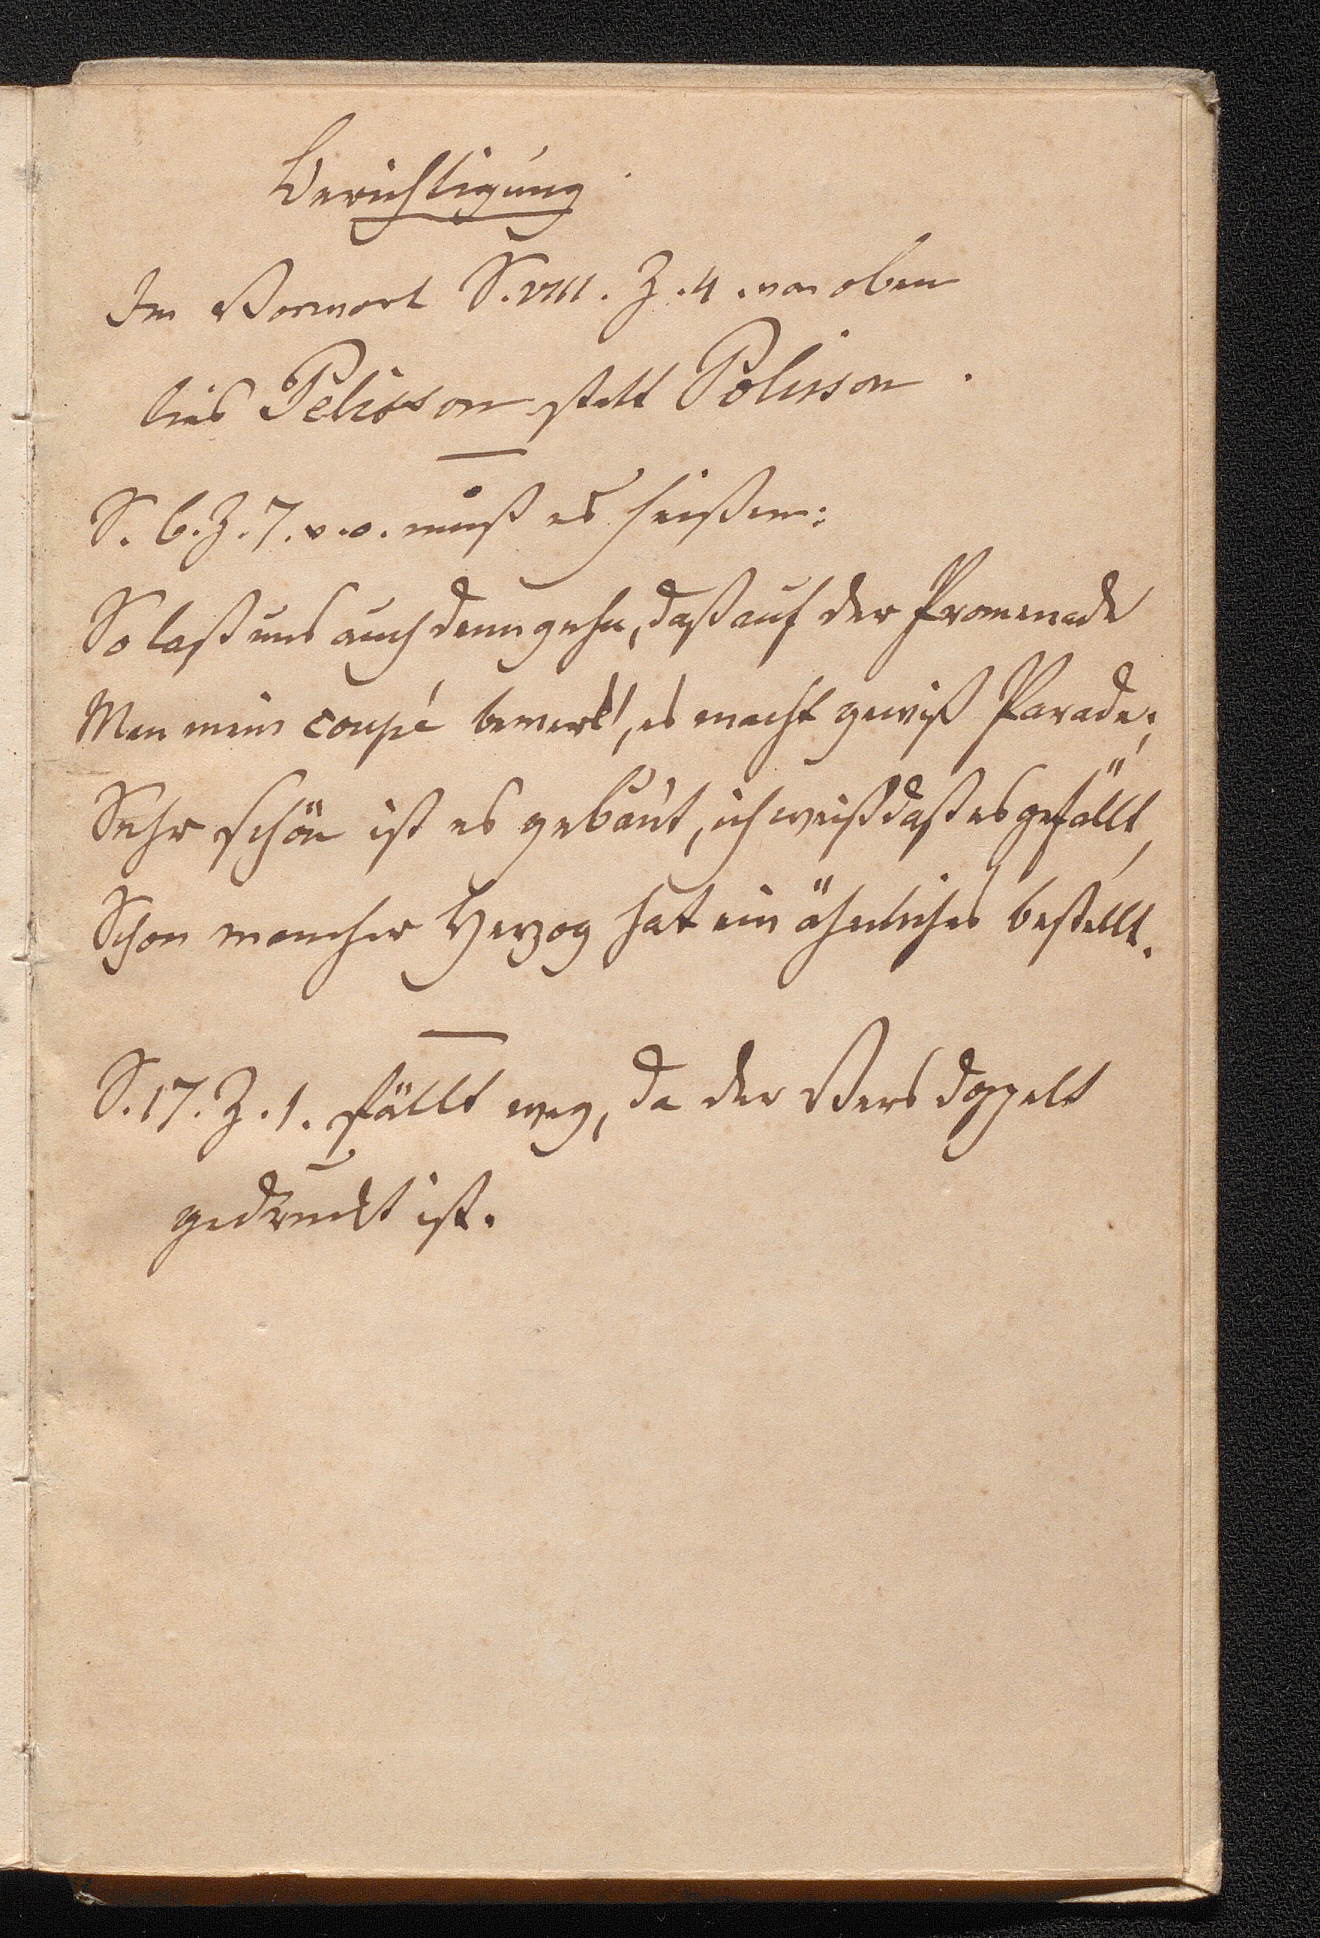 Berichtigung.
Im Vorwort S. VIII. Z. 4. von oben
lies Pelisson statt Polisson.
S. 6. Z. 7. v. o. muß es heißen:
So laß uns auch denn gehn, daß auf der Promenade
Man mein coupé bemerk', es macht gewiß Parade;
Sehr schön ist es gebaut, ich weiß daß es gefällt,
Schon mancher Herzog hat ein ähnliches bestellt.
S. 17. Z. 1. fällt weg, da der Vers doppelt
gedruckt ist.